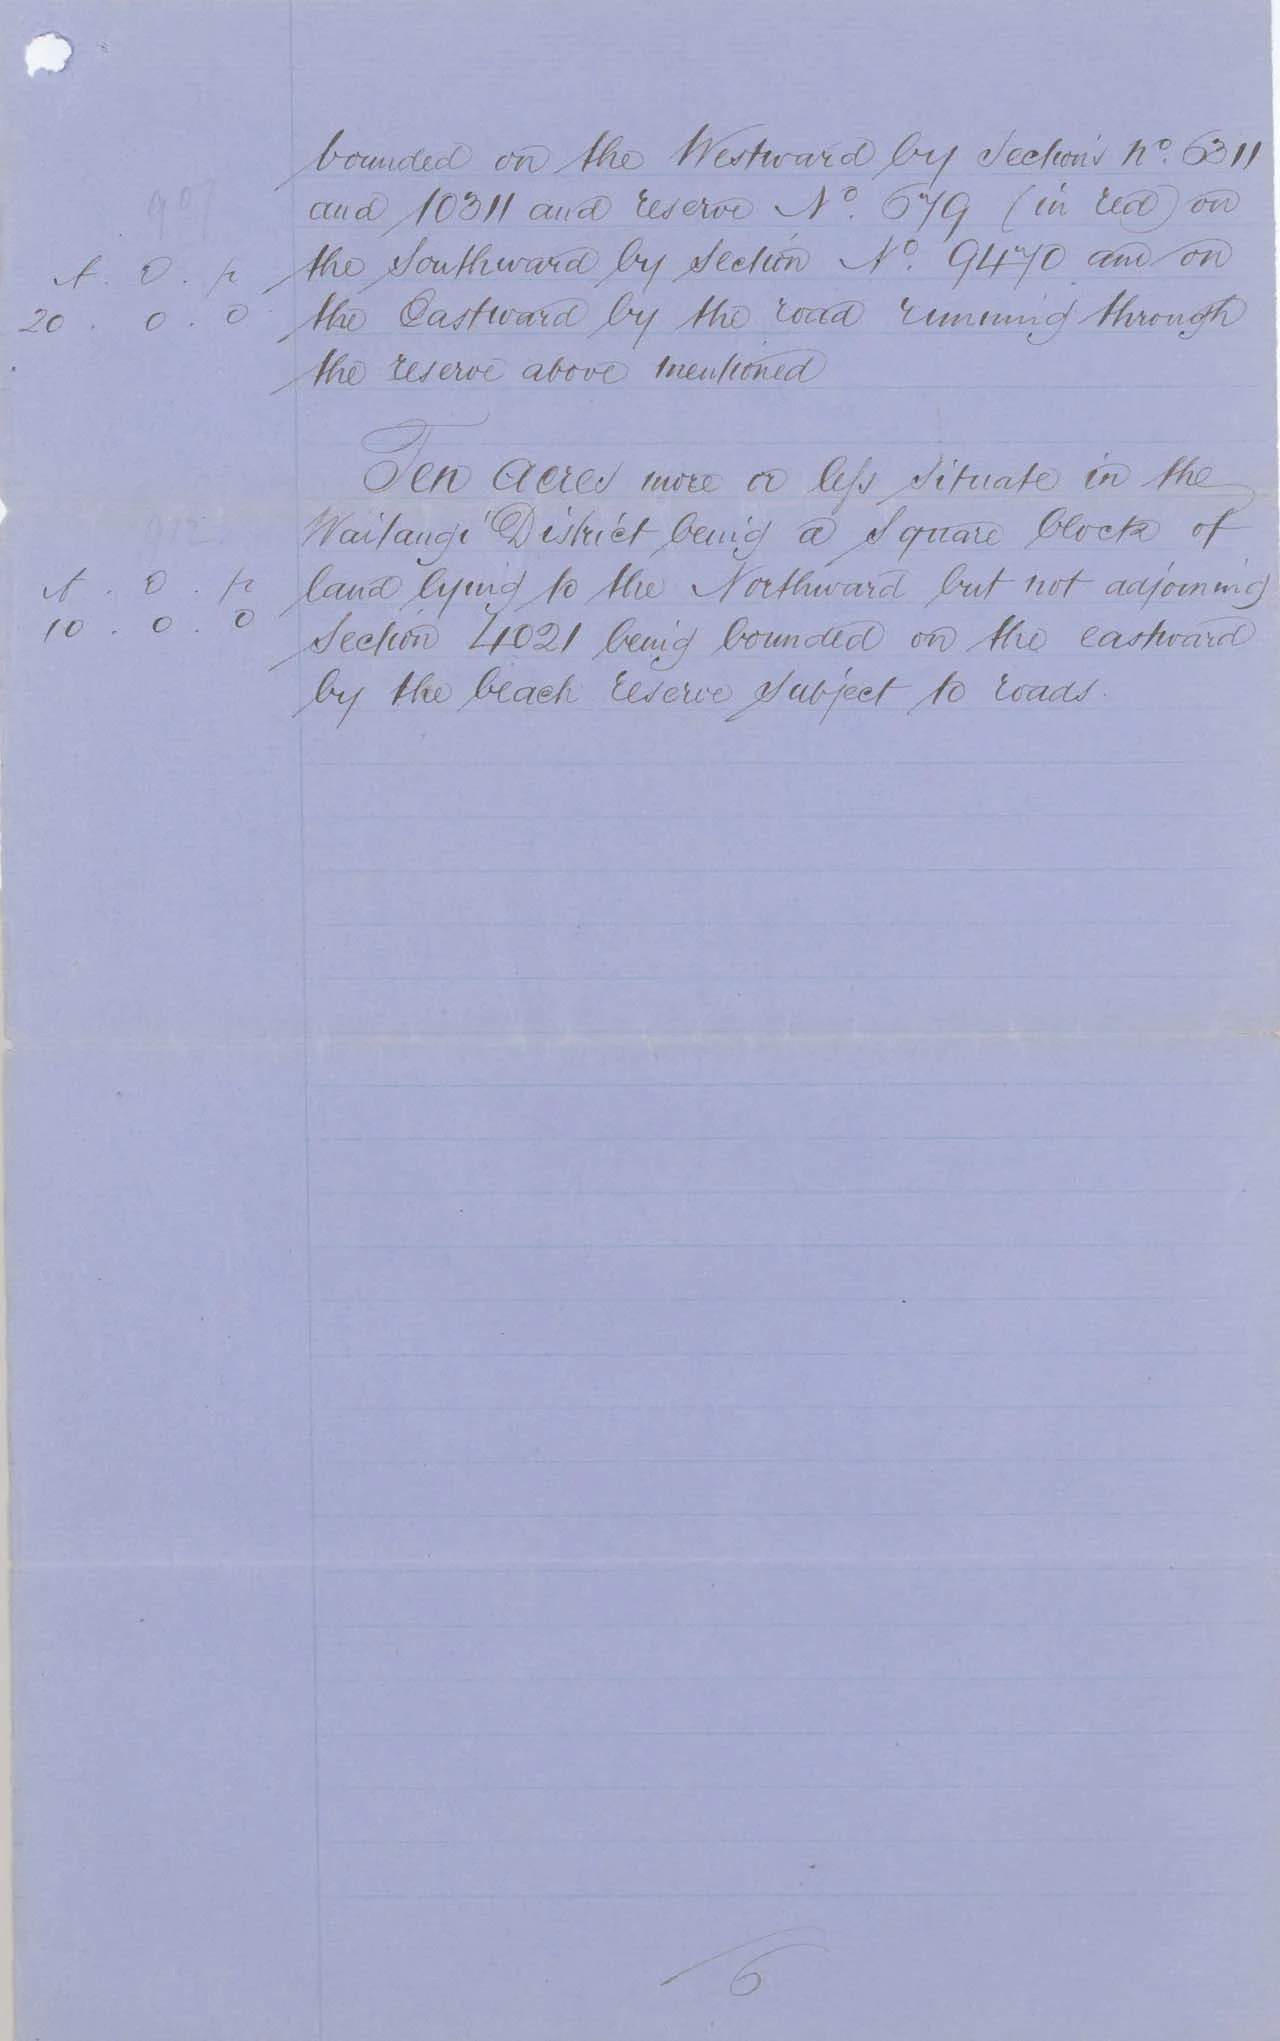 bounded on the Westward by Sections No. 6311
907
and 10311 and reserve No. 679 (in red) on
A. R. P.
the Southward by Section No. 9470 and on
20. 0. 0
the Eastward by the road running through
the reserve above mentioned
Ten acres more or less situate in the
912
Waitangi District being a Square block of
A. R. P
land lying to the Northward but not adjoining
10. 0. 0
Section 4021 being bounded on the eastward
by the beach reserve subject to roads.
6